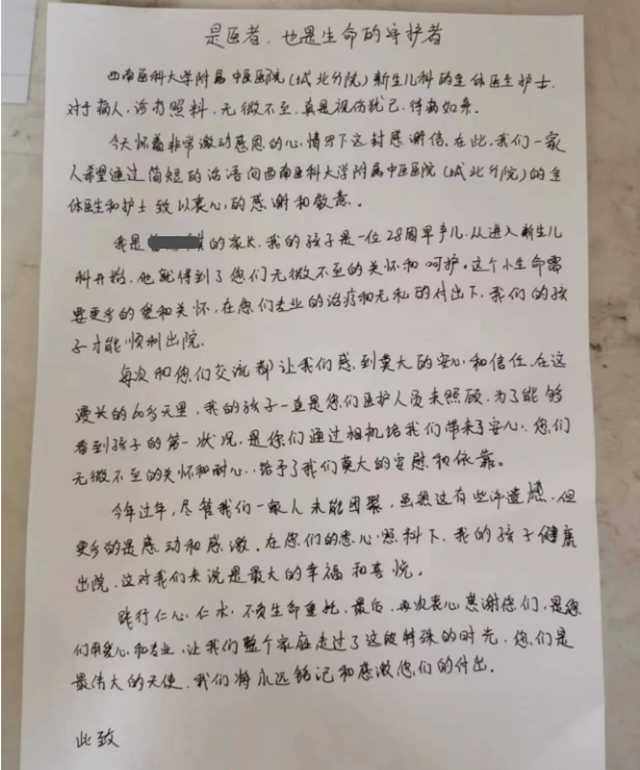 是医者、也是生命的守护者
西南医科大学附属中医医院(城北分院)新生儿科的全体医生护士,
对于病人,诊疗照料,无微不至,真是视伤犹己,待病如亲。
今天怀着非常激动感恩的心,情写下这封感谢信。在此,我们一家
人希望通过简短的话语向西南医科大学附属中医医院(城北分院)的全
体医生和护士致以衷心的感谢和敬意。
我是的家长,我的孩子是一位28周早产儿,从进入新生儿
科开始,他就得到了您们无微不至的关怀和呵护。这个小生命需
要更多的爱和关怀,在您们专业的治疗和无私的付出下,我们的孩
子才能顺利出院。
每次和您们交流都让我们感到莫大的安心和信任。在这
漫长的60多天里,我的孩子一直是您们医护人员来照顾,为了能够
看到孩子的第一状况,是您们通过相机给我们带来了安心。您们
无微不至的关怀和耐心,给予了我们莫大的安慰和依靠。
今年过年,尽管我们一家人未能团聚,虽然这有些许遗憾,但
更多的是感动和感激。在您们的悉心照料下,我的孩子健康
出院,这对我们来说是最大的幸福和喜悦。
践行仁心、仁术,不负生命重托,最后,再次衷心感谢您们,是您
们用爱心和专业,让我们整个家庭走过了这段特殊的时光,您们是
最伟大的天使,我们将永远铭记和感激您们的付出。
此致